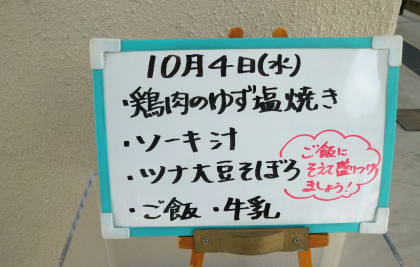 10月4日(水)
・鶏肉のゆず塩焼き
・ソーキ汁
・ツナ大豆そぼろ
・ご飯 ・牛乳
ご飯に
そえて盛りつけ
ましょう!